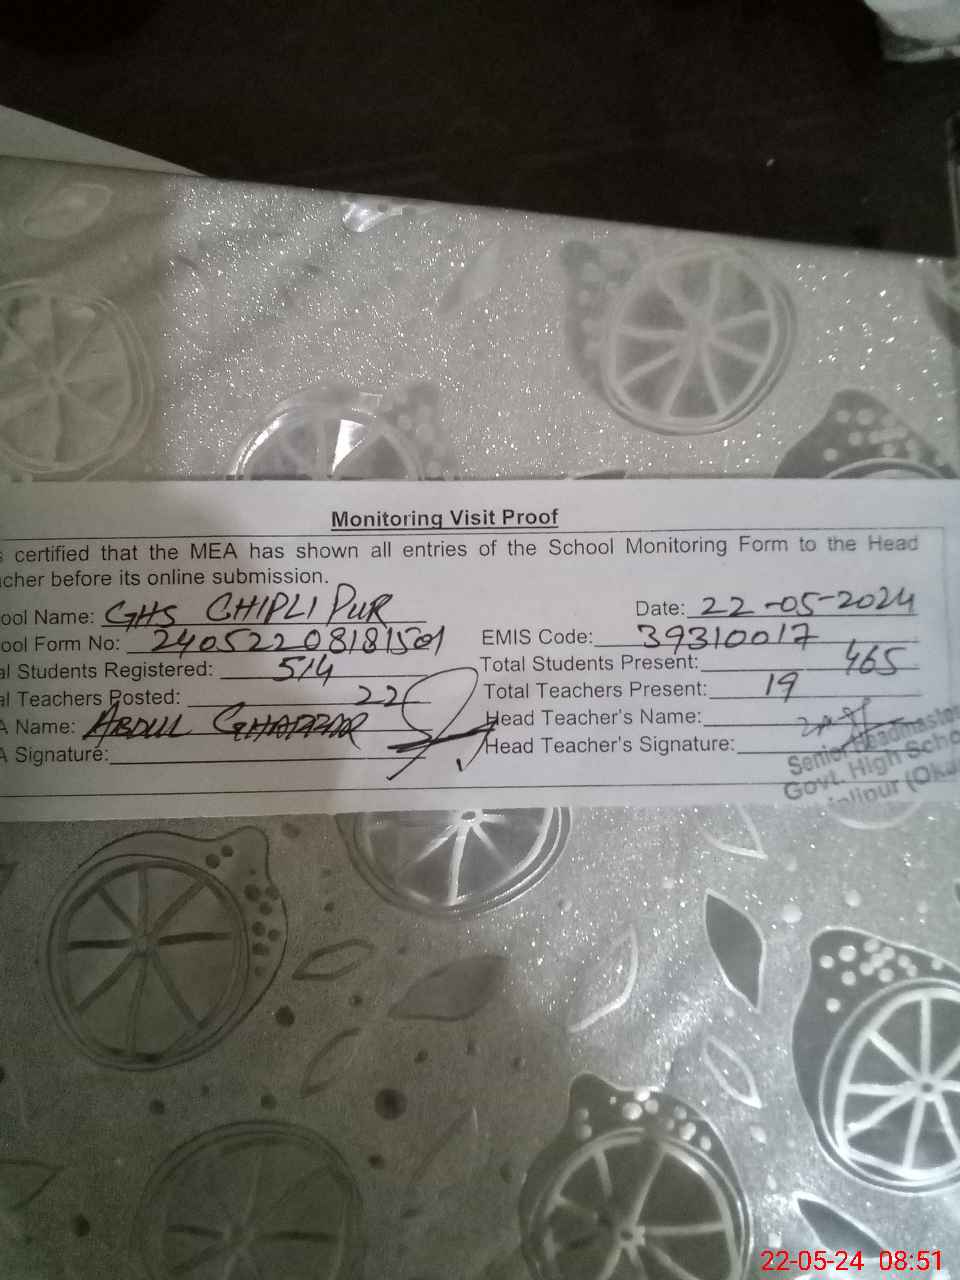 Monitoring Visit Proof
s certified that the MEA has shown all entries of the School Monitoring Form to the Head
cher before its online submission.
ool Name: GHS CHIPLI PUR Date: 22-05-2024
ool Form No: 24052208181501 EMIS Code: 39310017
al Students Registered: 514 Total Students Present: 465
al Teachers Posted: 22 Total Teachers Present: 19
A Name: ABDUL GHAFFAR Head Teacher's Name:
A Signature: Head Teacher's Signature:
Senior Headmaster
Govt. High Scho
iplipur (Oka
22-05-24 08:51